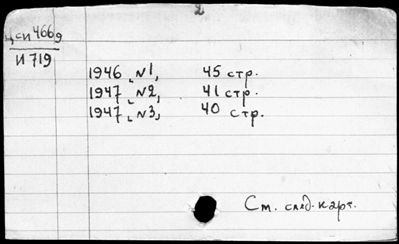 2
Цси 4669
И 719
1946, №1, 45 стр.
1947, №2, 41 стр.
1947, №3, 40 стр.
См. след. карт.